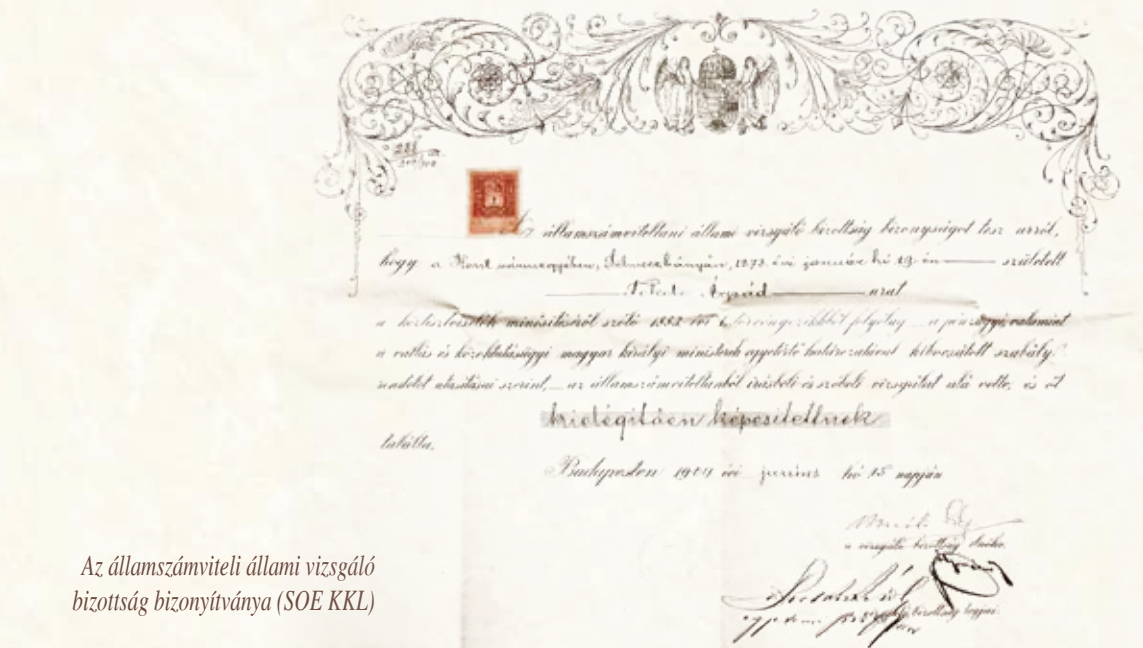 Az államszámviteltani állami vizsgáló bizottság bizonyságot tesz arról,
hogy a Hont vármegyében, Selmeczbányán, 1873. évi január hó 19 én születeett
Árpád urat
a köztisztviselők minősítéséről szóló 1883 évi I. törvényczikkből folyólag a pénzügyi, valamint
a vallás és közoktatásügyi magyar királyi ministerek egyetértő határozatával kibocsátott szabály
rendelet utasításai szerint, az államszámviteltanból írásbeli és szóbeli vizsgálat alá vette, és őt
kielégítően képesítettnek
találta.
Budapesten 1904 évi junius hó 15 napján
a vizsgáló bizottság elnöke.
vizsgáló bizottság tagjai.
Az államszámviteli állami vizsgáló
bizottság bizonyítványa (SOE KKL)